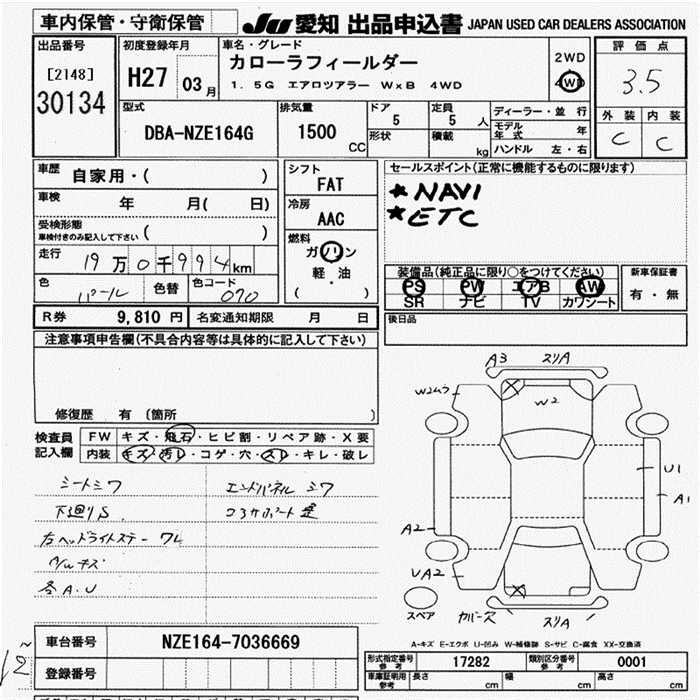 車内保管・守衛保管
JU 愛知 出品申込書 JAPAN USED CAR DEALERS ASSOCIATION
出品番号
[2148]
30134
初度登録年月
H27 03月
車名・グレード
カローラフィールダー
1.5G エアロツアラー W×B 4WD
2WD
4WD
評価点
3.5
外装 内装
C C
型式
DBA-NZE164G
排気量
1500
CC
ドア
5
形状
定員
5 人
積載
kg
ディーラー・並行
モデル年式 年
ハンドル 左・右
車歴 自家用・( )
車検 年 月( 日)
受検形態
車検付きのみ記入して下さい ( )
走行 19万0千994km
色 パール 色替 色コード 070
シフト
FAT
冷房
AAC
燃料
ガソリン
軽・油
( )
セールスポイント(正常に機能するものに限ります)
★NAVI
★ETC
装備品(純正品に限り○をつけてください)
PS PW エアB AW
SR ナビ TV カワシート
新車保証書
有・無
R券 9,810円 名変通知期限 月 日
後日品
注意事項申告欄(不具合内容等は具体的に記入して下さい)
修復歴 有 (箇所 )
検査員
記入欄
FW キズ・飛石・ヒビ割・リペア跡・X要
内装 キズ・汚レ・コゲ・穴・スレ・キレ・破レ
シートシワ
エンドパネル シワ
下廻りS
コアサポート
右ヘッドライトステー ワレ
キズ
各A.U
A3 スリA
W2ムラ
W2
U1
A1
A2
UA2
スペア
カバー欠 スリA
A-キズ E-エクボ U-凹み W-補修跡 S-サビ C-腐食 XX-交換済
車台番号 NZE164-7036669
登録番号
形式指定番号
参考
17282
類別区分番号
参考
0001
車庫証明用
参考
長さ cm 幅 cm 高さ cm